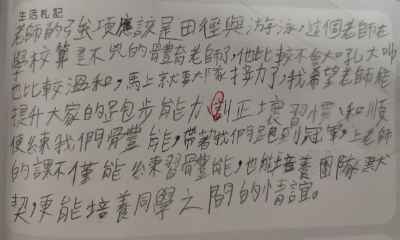 生活札記
老師的強項應該是田徑與游泳,這個老師在
學校算是不兇的體育老師了,他比較不會大吼大叫
也比較溫和,馬上就要大隊接力了,我希望老師能
提升大家的跑步能力、糾正壞習慣,和順
便練我們的體能,帶著我們跑到冠軍,上老師
的課不僅能練習體能,也能培養團隊默
契,更能培養同學之間的情誼。